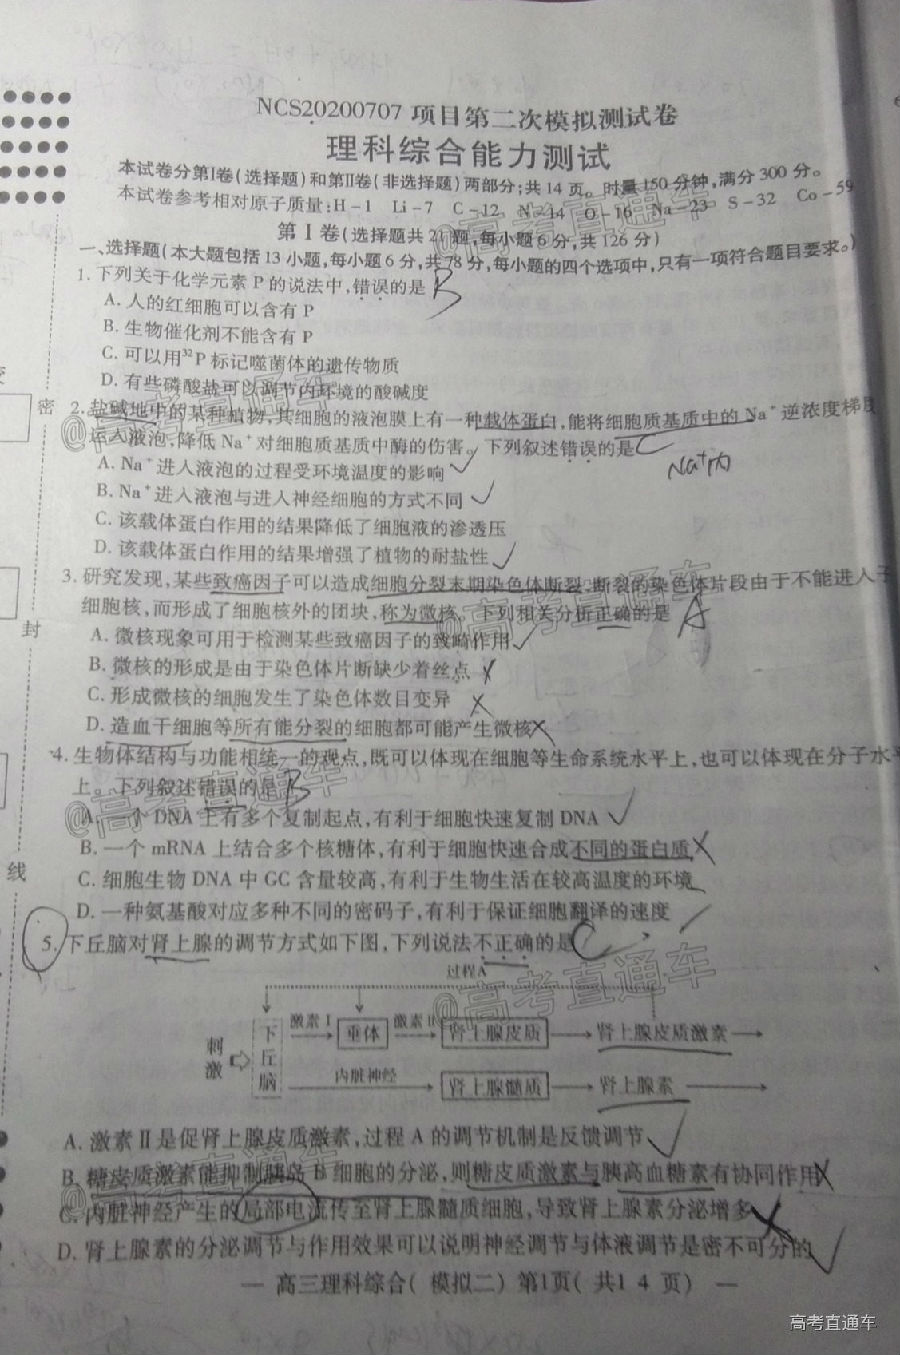 NCS20200707 项目第二次模拟测试卷
理科综合能力测试
本试卷分第Ⅰ卷(选择题)和第Ⅱ卷(非选择题)两部分;共14页。时量150分钟,满分300分。
本试卷参考相对原子质量:H-1 Li-7 C-12 N-14 O-16 Na-23 S-32 Co-59
第Ⅰ卷(选择题共21题,每小题6分,共126分)
一、选择题(本大题包括13小题,每小题6分,共78分,每小题的四个选项中,只有一项符合题目要求。)
1.下列关于化学元素P的说法中,错误的是 B
A.人的红细胞可以含有P
B.生物催化剂不能含有P
C.可以用³²P标记噬菌体的遗传物质
D.有些磷酸盐可以调节内环境的酸碱度
2.盐碱地中的某种植物,其细胞的液泡膜上有一种载体蛋白,能将细胞质基质中的Na⁺逆浓度梯度
运入液泡,降低Na⁺对细胞质基质中酶的伤害。下列叙述错误的是 C
Na⁺内
A.Na⁺进入液泡的过程受环境温度的影响
B.Na⁺进入液泡与进人神经细胞的方式不同
C.该载体蛋白作用的结果降低了细胞液的渗透压
D.该载体蛋白作用的结果增强了植物的耐盐性
3.研究发现,某些致癌因子可以造成细胞分裂末期染色体断裂,断裂的染色体片段由于不能进人子
细胞核,而形成了细胞核外的团块,称为微核。下列相关分析正确的是 A
A.微核现象可用于检测某些致癌因子的致畸作用
B.微核的形成是由于染色体片断缺少着丝点
C.形成微核的细胞发生了染色体数目变异
D.造血干细胞等所有能分裂的细胞都可能产生微核
4.生物体结构与功能相统一的观点,既可以体现在细胞等生命系统水平上,也可以体现在分子水平
上。下列叙述错误的是 B
A.一个DNA上有多个复制起点,有利于细胞快速复制DNA
B.一个mRNA上结合多个核糖体,有利于细胞快速合成不同的蛋白质
C.细胞生物DNA中GC含量较高,有利于生物生活在较高温度的环境
D.一种氨基酸对应多种不同的密码子,有利于保证细胞翻译的速度
5.下丘脑对肾上腺的调节方式如下图,下列说法不正确的是 C
过程A
刺激 下丘脑 激素Ⅰ 垂体 激素Ⅱ 肾上腺皮质 肾上腺皮质激素
内脏神经 肾上腺髓质 肾上腺素
A.激素Ⅱ是促肾上腺皮质激素,过程A的调节机制是反馈调节
B.糖皮质激素能抑制胰岛B细胞的分泌,则糖皮质激素与胰高血糖素有协同作用
C.内脏神经产生的局部电流传至肾上腺髓质细胞,导致肾上腺素分泌增多
D.肾上腺素的分泌调节与作用效果可以说明神经调节与体液调节是密不可分的
— 高三理科综合( 模拟二) 第1页( 共1 4 页) —
密
封
线
@高考直通车
@高考直通车
@高考直通车
@高考直通车
@高考直通车
@高考直通车
高考直通车